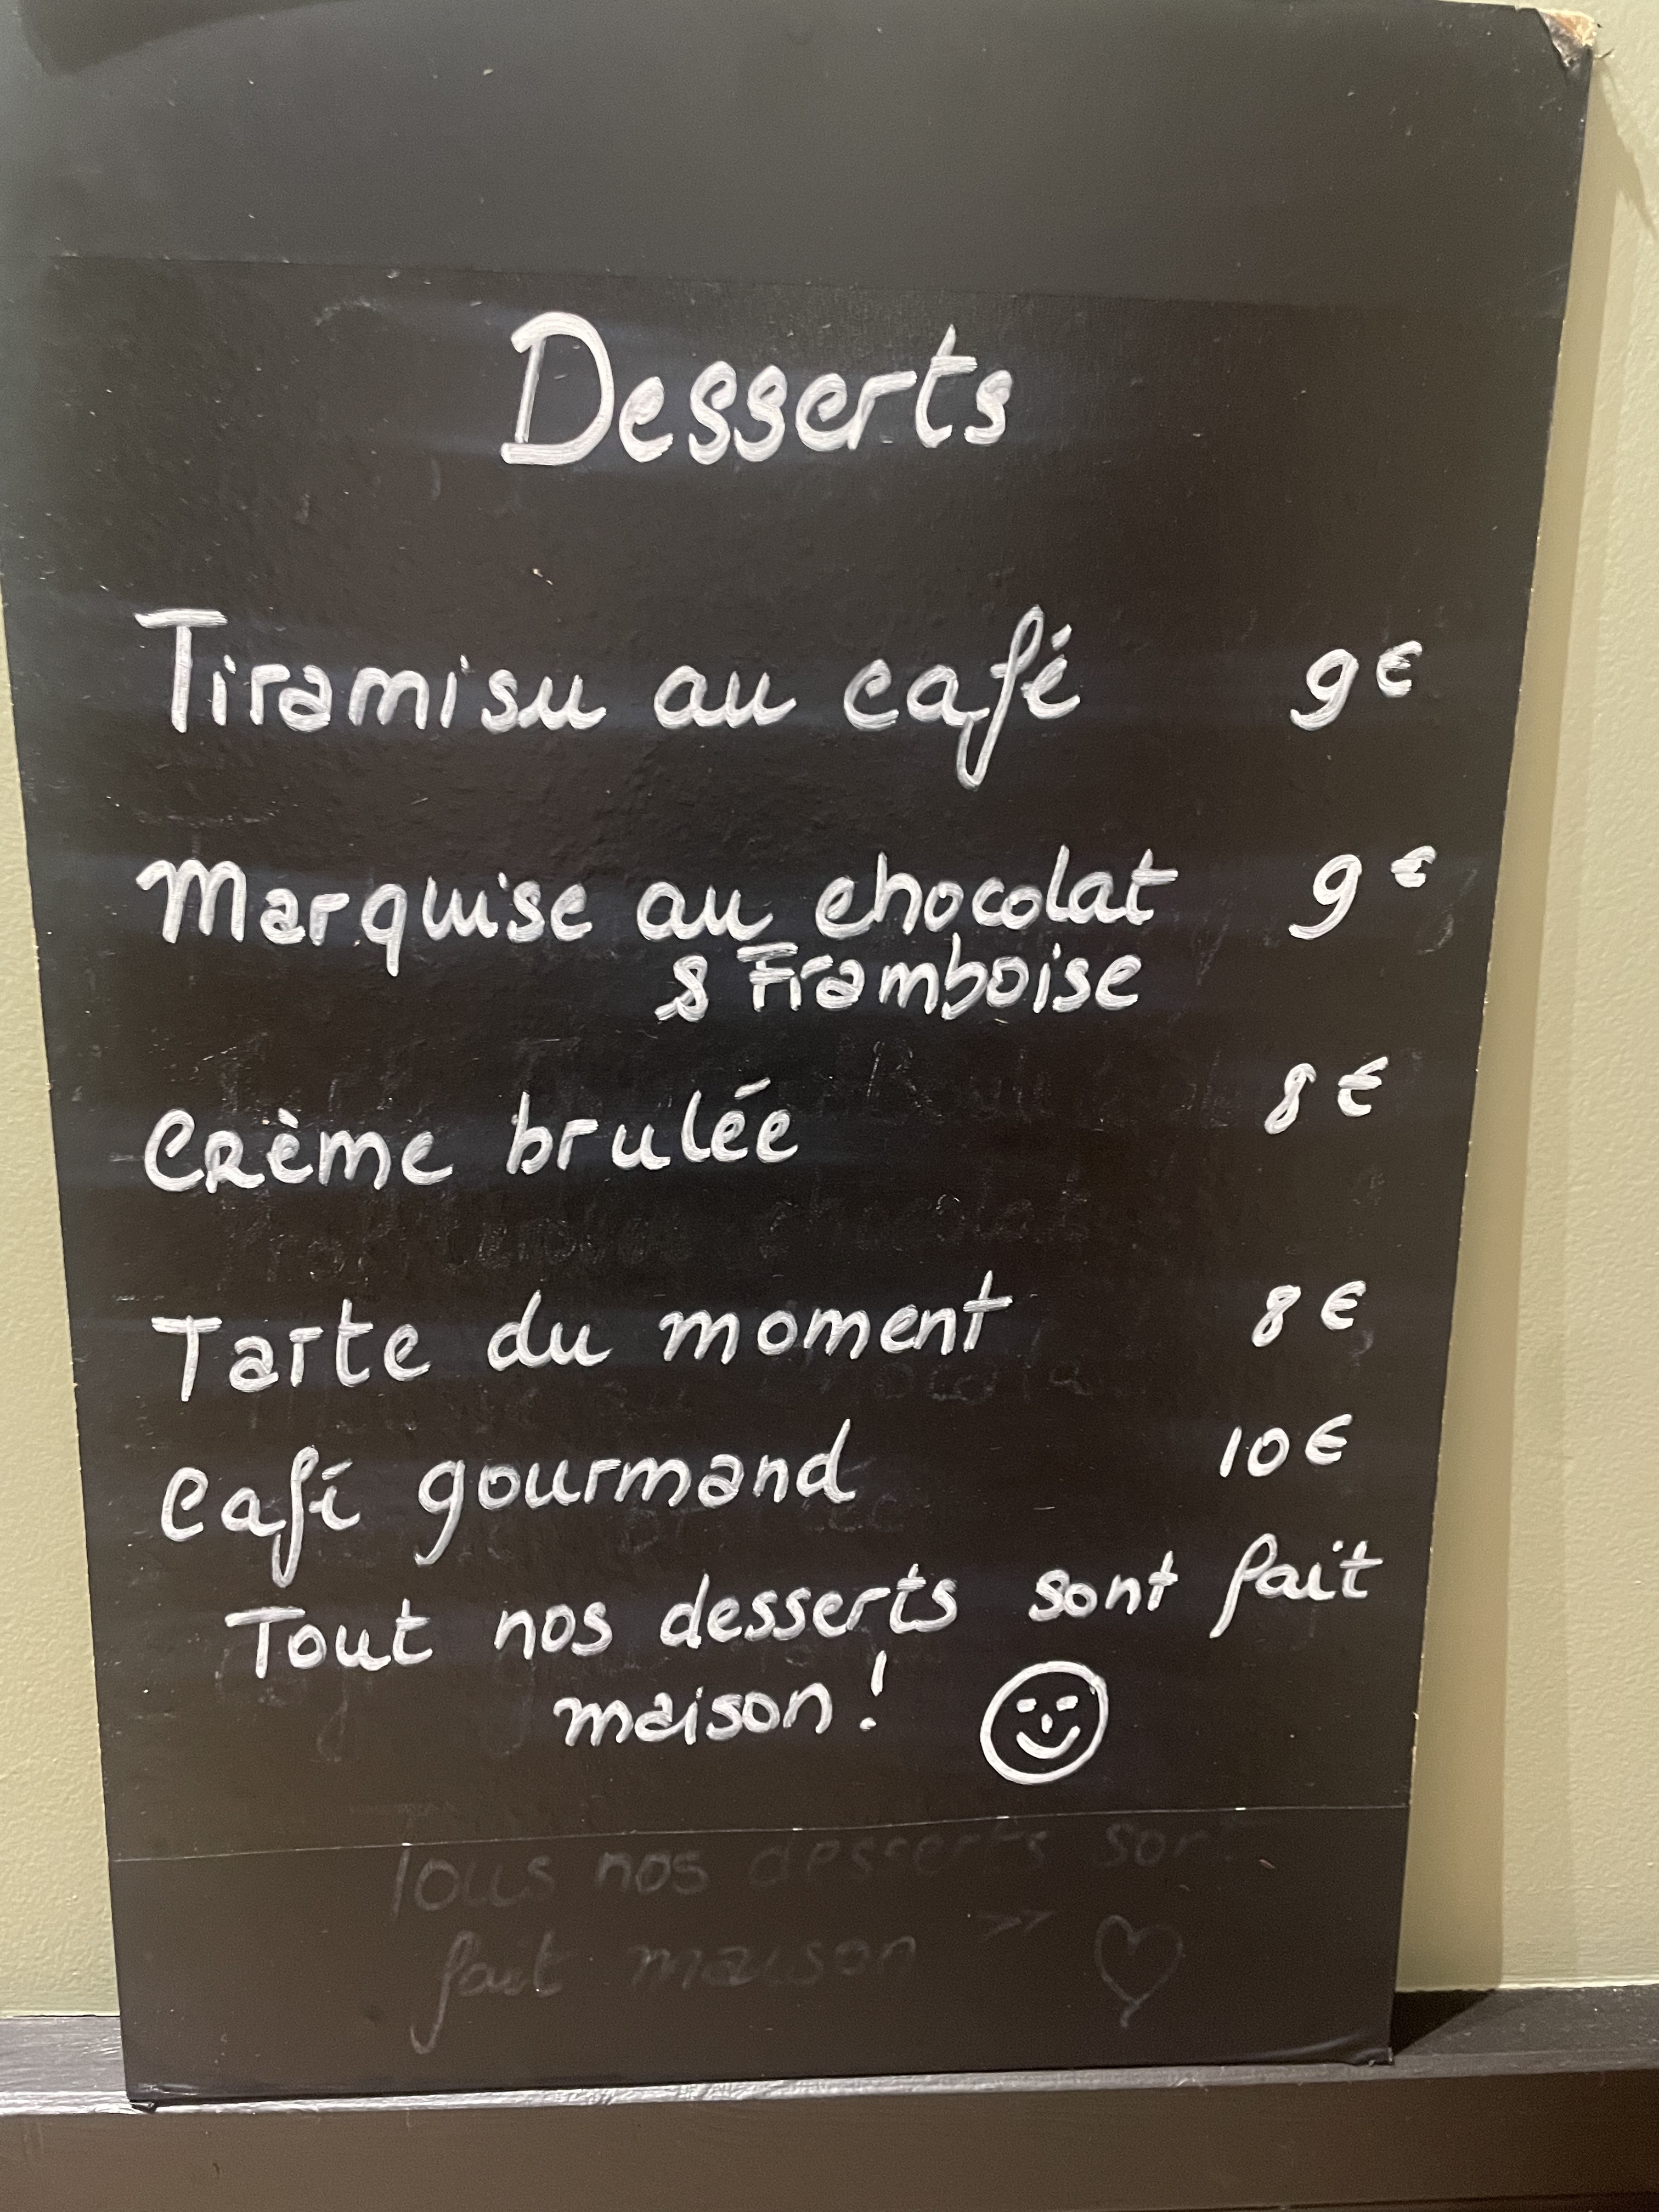 Desserts
Tiramisu au café 9€
Marquise au chocolat 9€
& Framboise
Crème brulée 8€
Tarte du moment 8€
Café gourmand 10€
Tout nos desserts sont fait
maison !
Tous nos desserts sont
fait maison